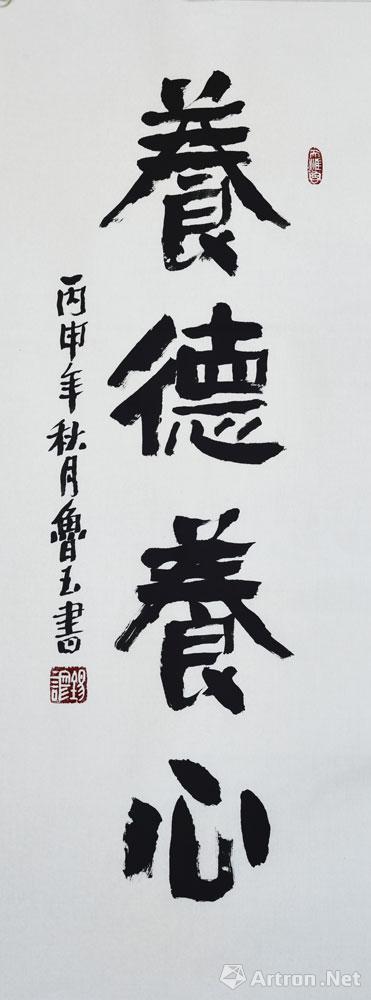 養德養心
丙申年秋月魯玉書
Artron.Net